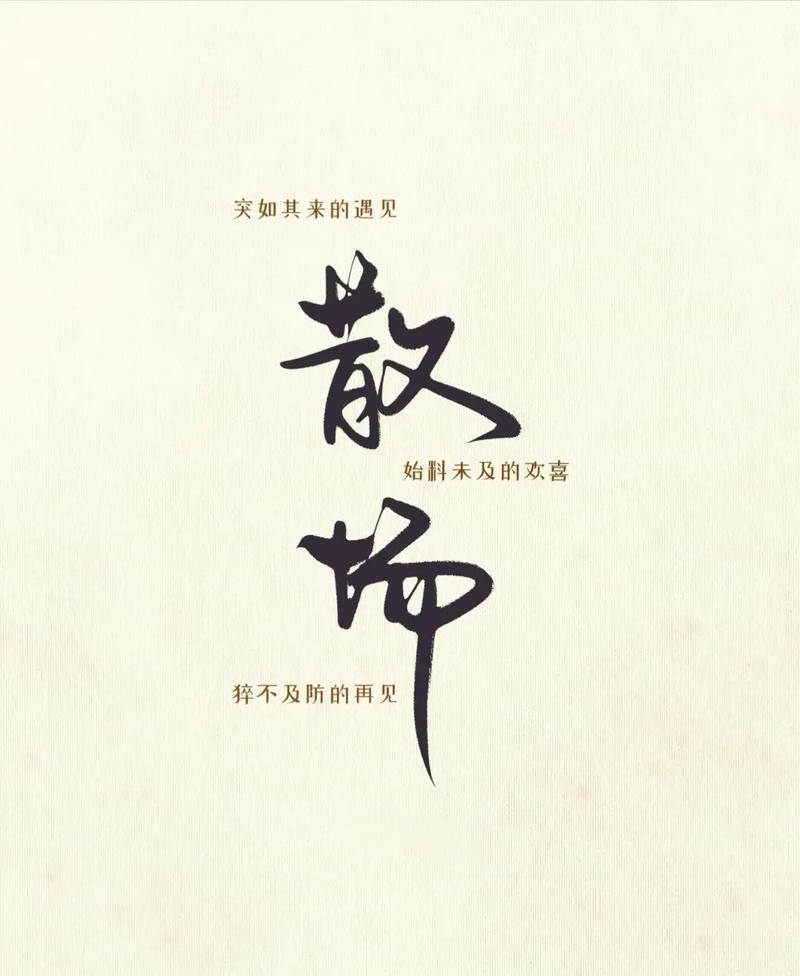 突如其来的遇见
散
始料未及的欢喜
场
猝不及防的再见